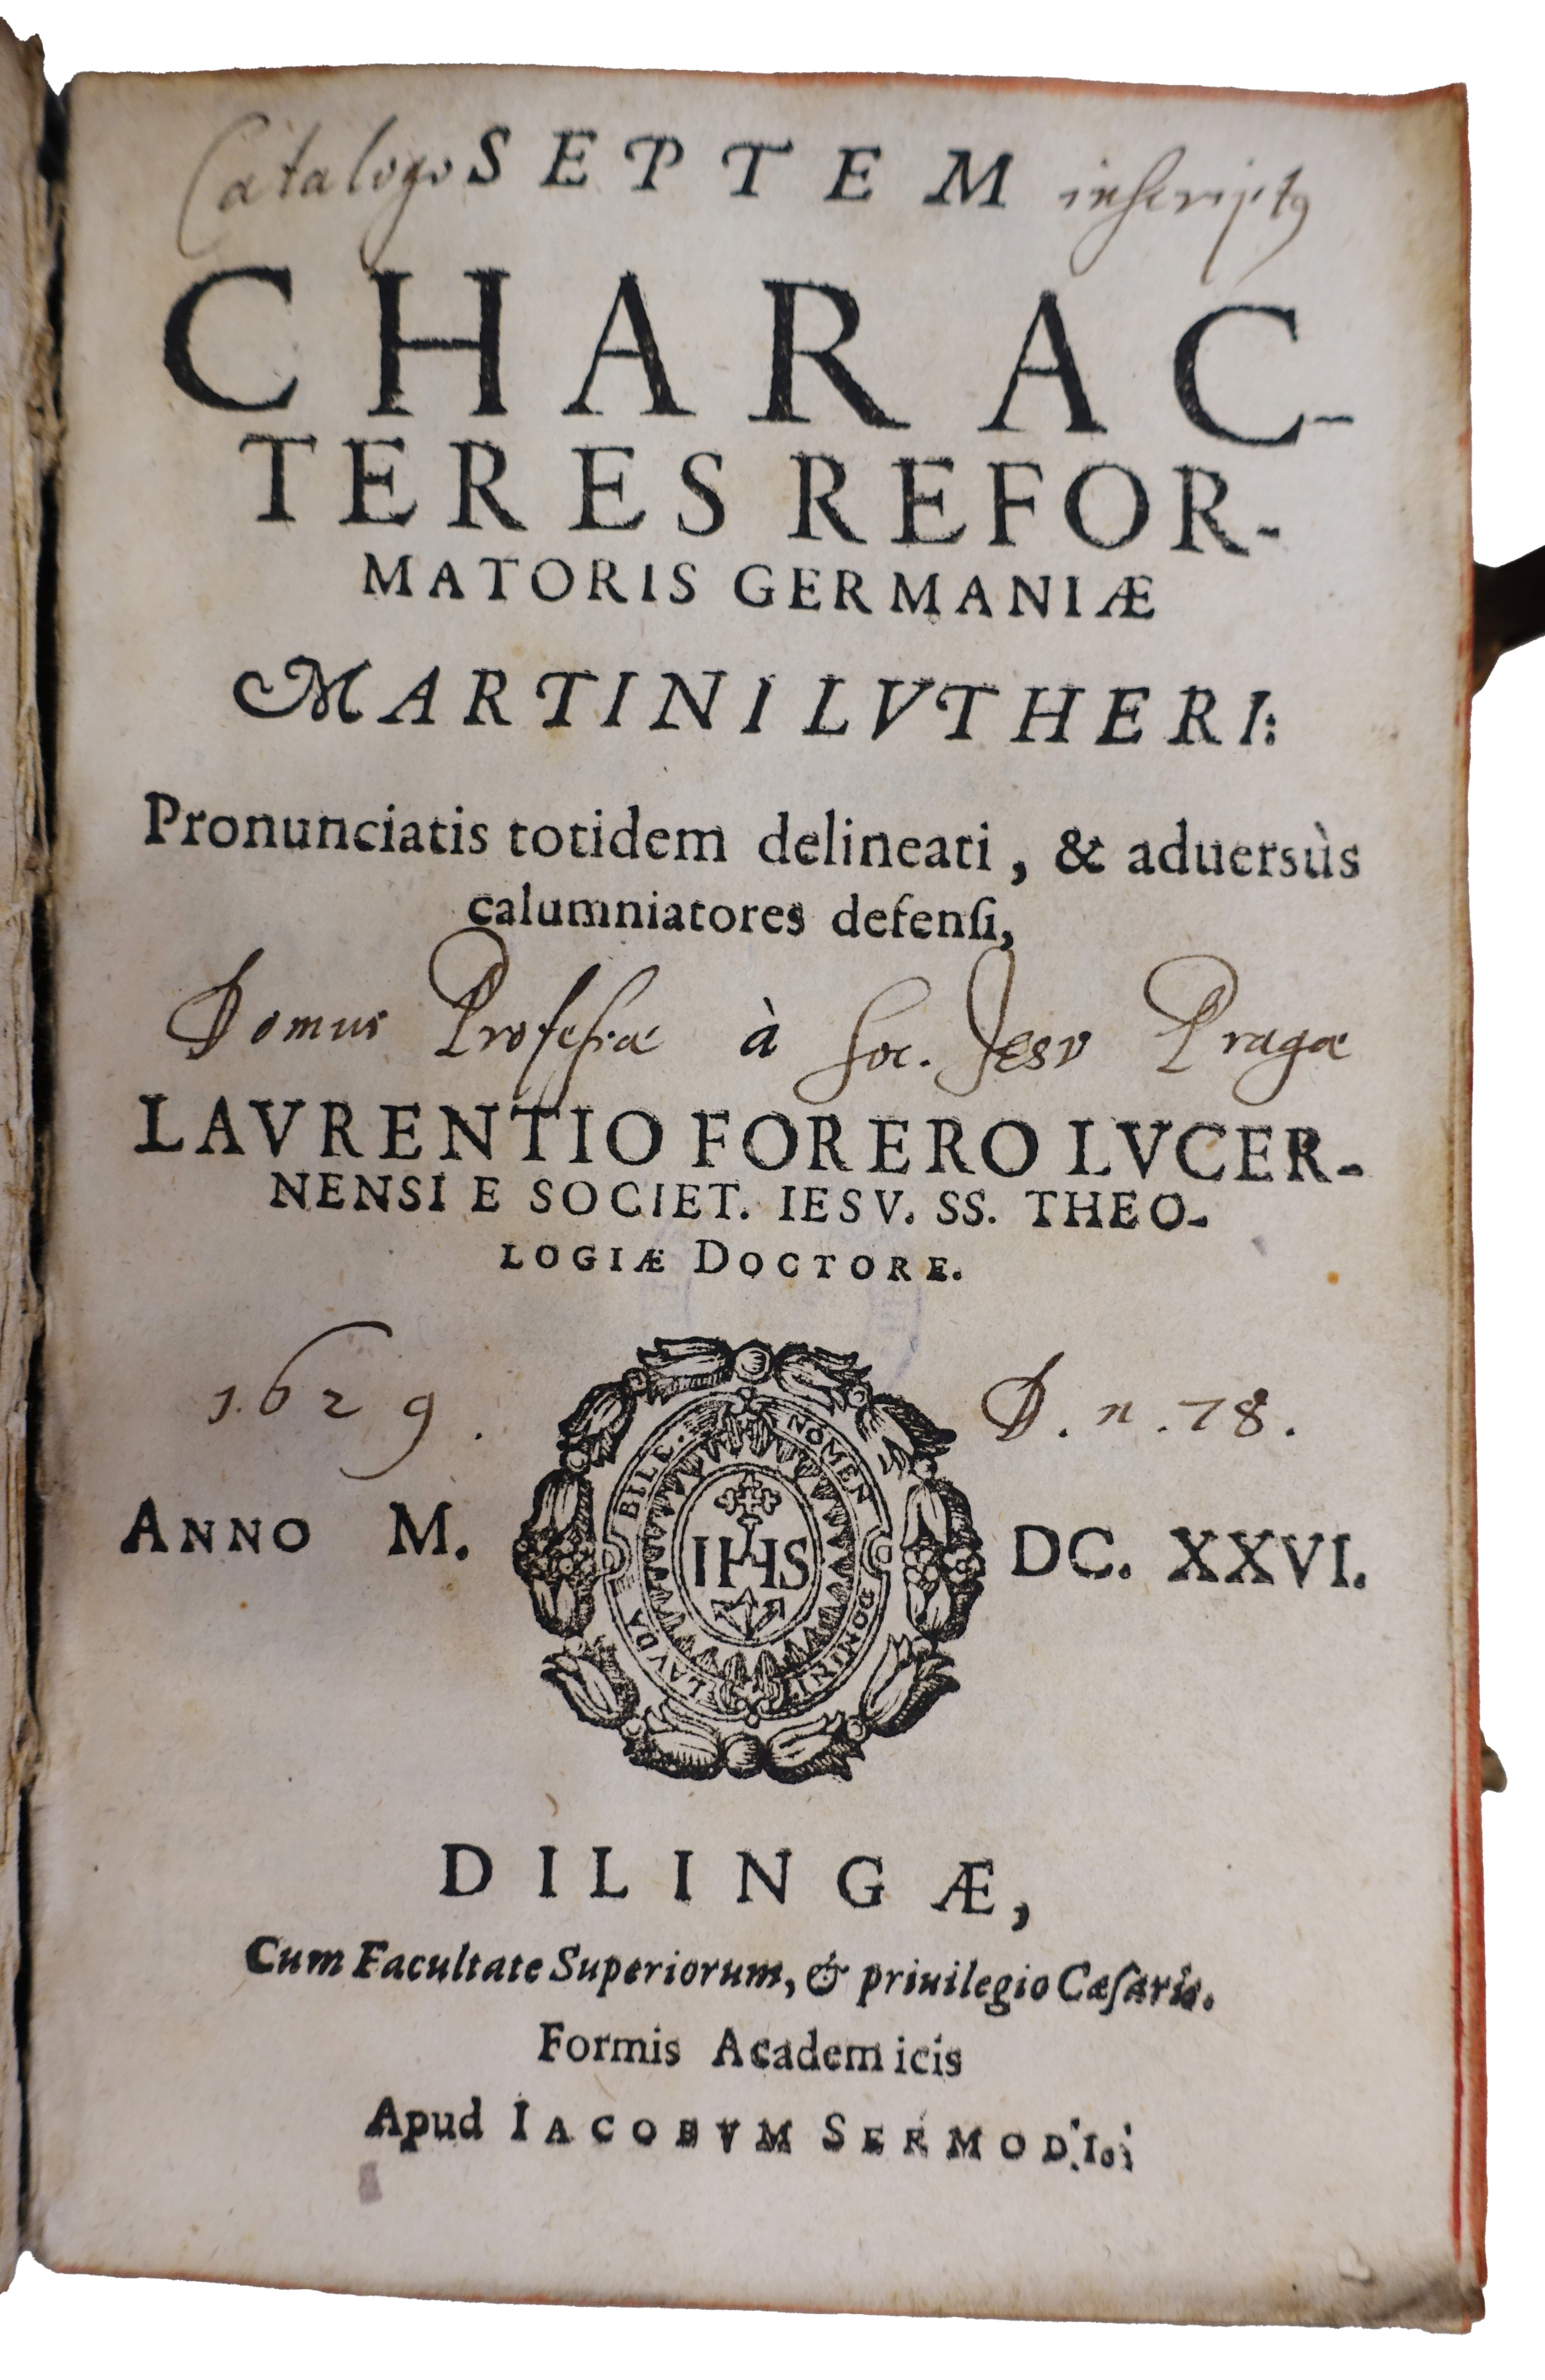 Catalogo SEPTEM inscriptꝰ
CHARAC-
TERES REFOR-
MATORIS GERMANIÆ
MARTINI LVTHERI:
Pronunciatis totidem delineati, & aduersùs
calumniatores defenſi,
Domus Profeſsæ à Soc. Jesv Pragæ
LAVRENTIO FORERO LVCER-
NENSI E SOCIET. IESV. SS. THEO-
LOGIÆ DOCTORE.
1629. D. n. 78.
LAVDA BILE. NOMEN DOMINI
IHS
ANNO M. DC. XXVI.
DILINGÆ,
Cum Facultate Superiorum, & priuilegio Cæſaris.
Formis Academicis
Apud IACOBVM SERMODI